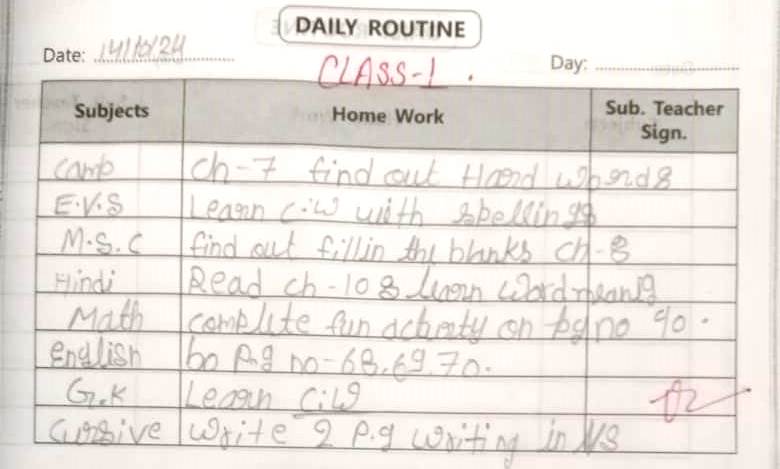 DAILY ROUTINE
Date: 14/10/24 Day:
CLASS-1.
Subjects Home Work Sub. Teacher Sign.
Comp ch-7 find out Hard words
E.V.S Learn C.W with spellings
M.S.C find out fill in the blanks ch-8
Hindi Read ch-10 & learn word meanig
Math complete fun activity on pg no 90.
english Do P.g no-68,69,70.
G.K Learn C.W
Cursive Write 2 P.g writing in NS